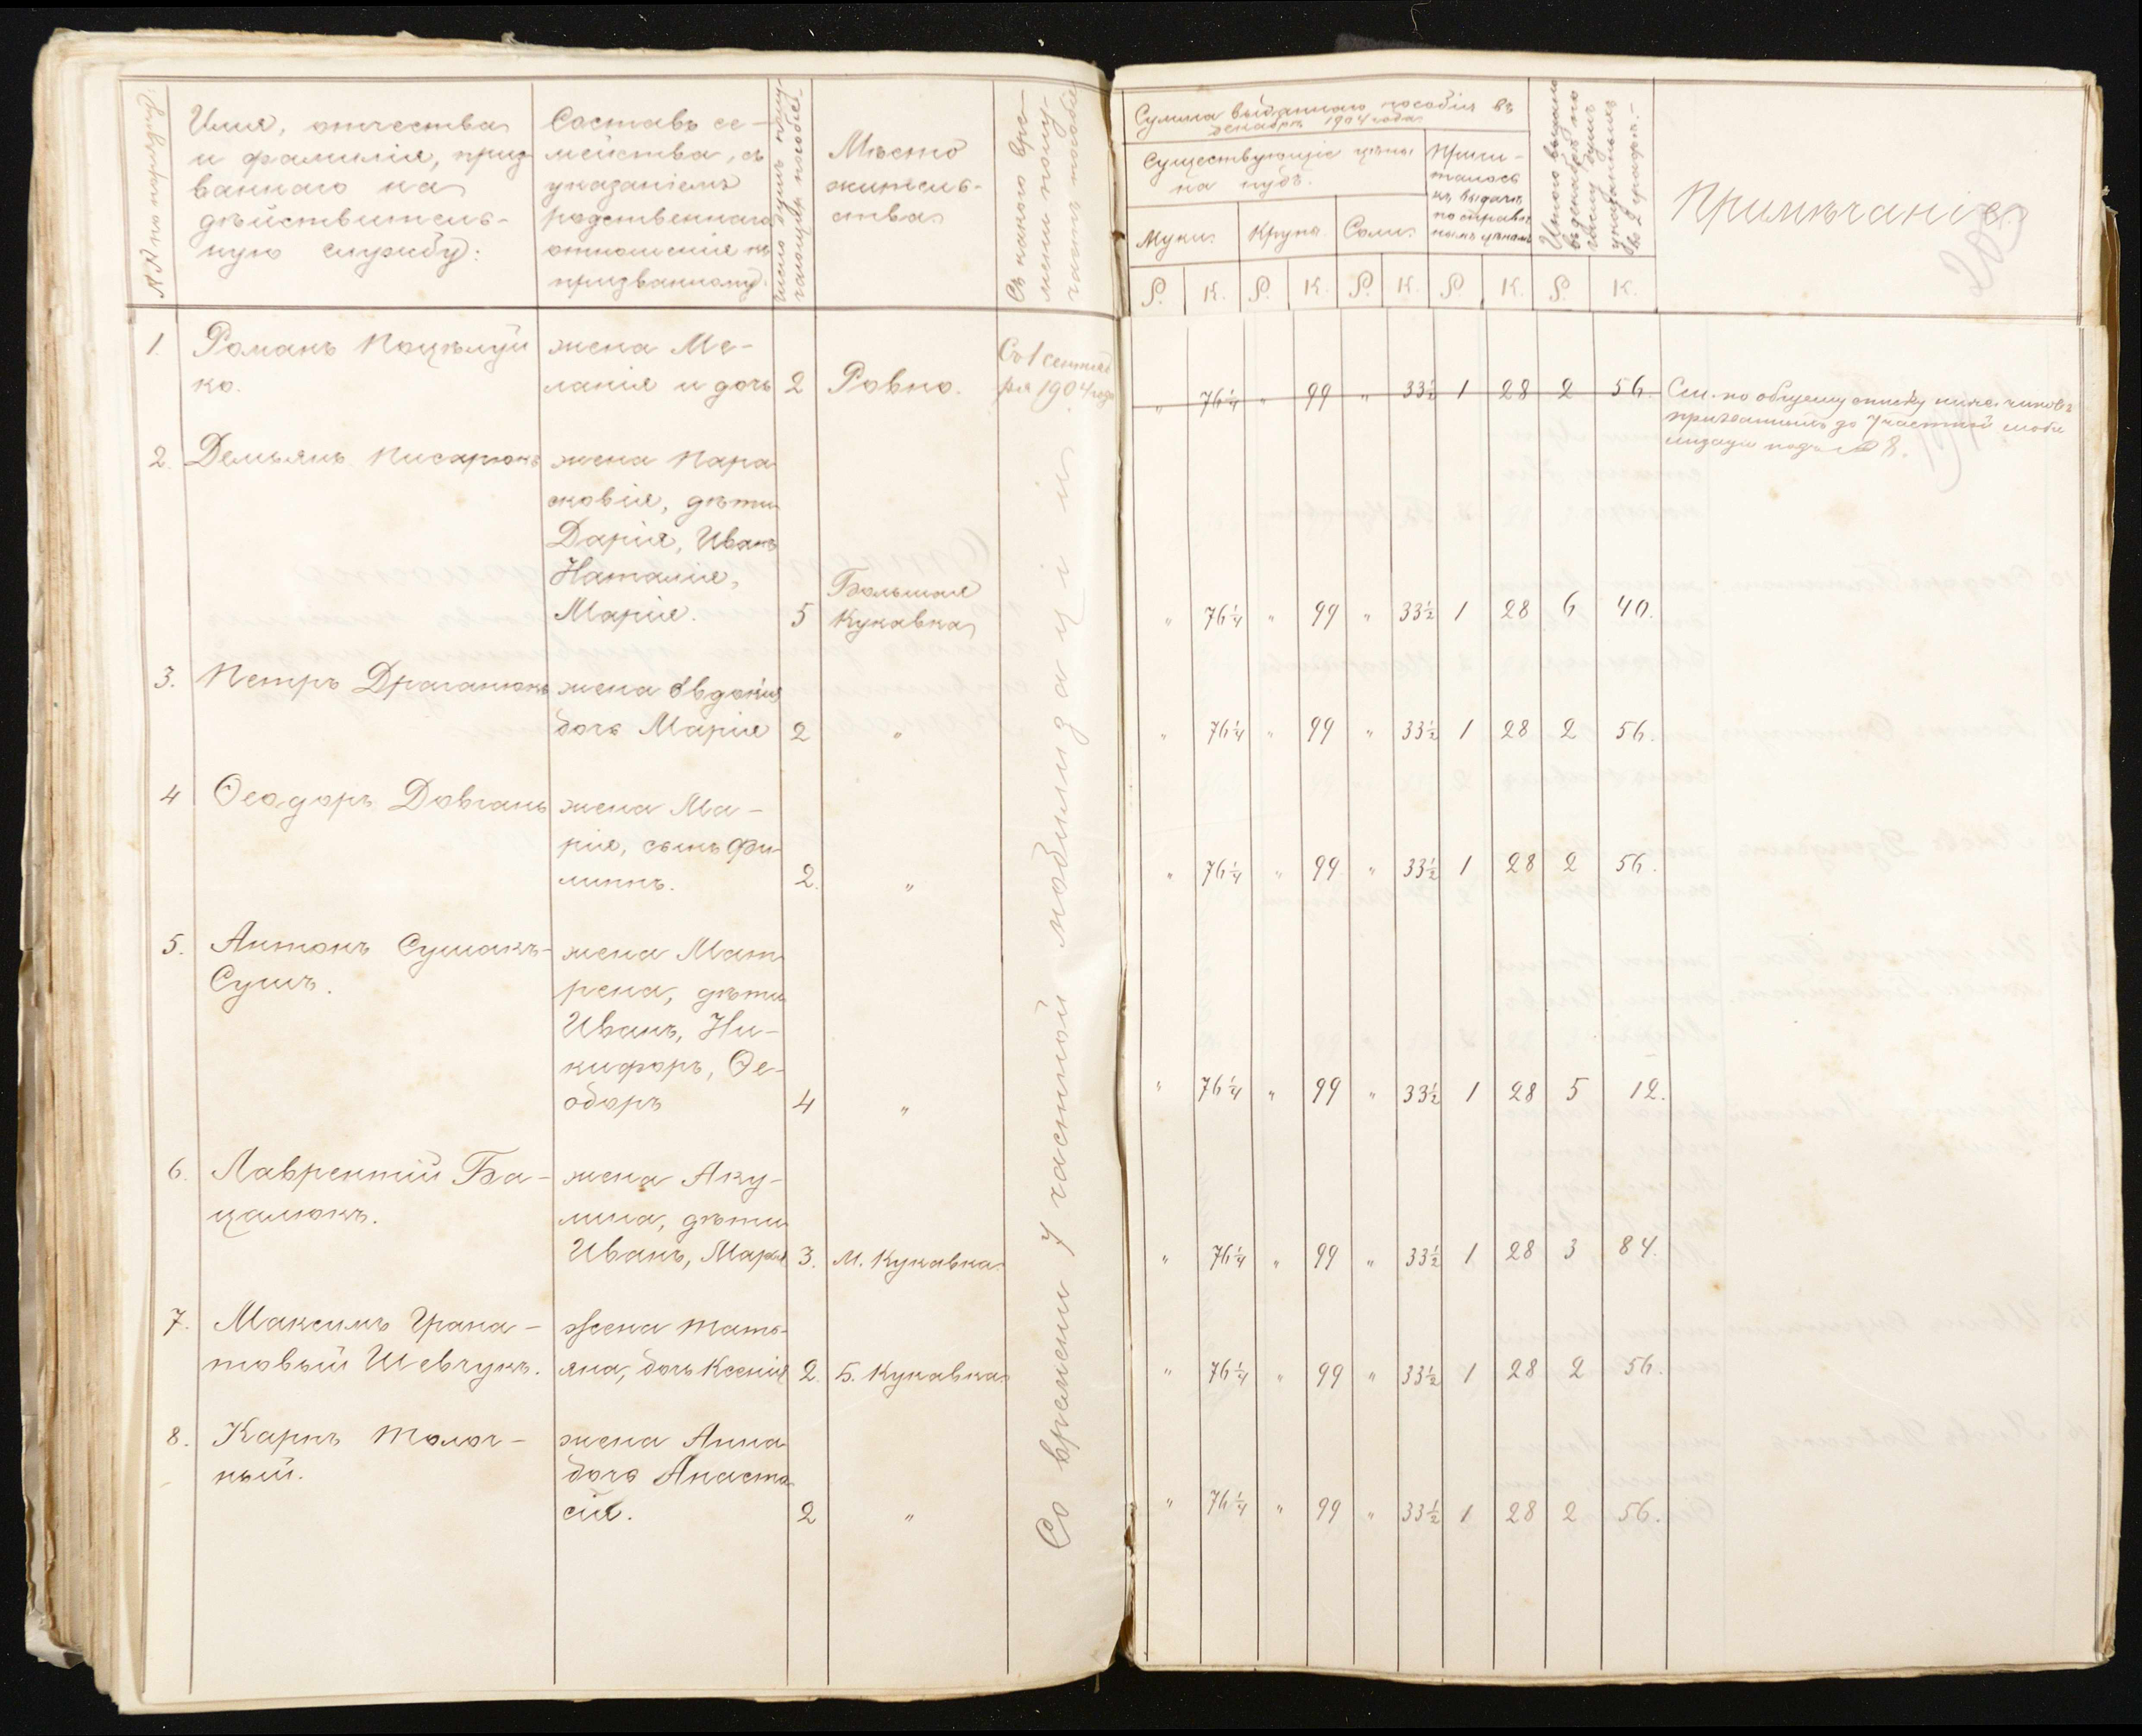 №№ по порядку.
Имя, отчество
и фамилія, приз
ваннаго на
дѣйствитель-
ную службу:
Составъ се-
мейства, съ
указаніемъ
родственнаго
отношенія къ
призванному.
Число душъ полу-
чающихъ пособіе.
Мѣсто
житель-
ства
Съ какого вре-
мени полу-
чаетъ пособіе
Сумма выданнаго пособія въ
декабрѣ 1904 года
Существующіе цѣны
на пудъ.
Муки.
Крупа.
Соли.
Причи-
талось
къ выдачѣ
по справоч
нымъ цѣнамъ
Итого выдано
въ декабрѣ по
числу душъ
указанныхъ
въ 2 графѣ.-
Примѣчаніе.
203
Р. К. Р. К. Р. К. Р. К. Р. К.
1. Романъ Поцѣлуй жена Ме-
ко. ланія и дочь 2 Ровно. Съ 1 сентяб
ря 1904 года
" 76¼ " 99 " 33½ 1 28 2 56. См. по общему списку нижн. чиновъ
призванныхъ до 7 частной моби
лизаціи подъ № 8.
2. Демьянъ Писарюкъ жена Пара
сковія, дѣти
Дарія, Иванъ
Наталія,
Марія. 5 Большая
Кукавка
" 76¼ " 99 " 33½ 1 28 6 40.
3. Петръ Драганюкъ жена Евдокія
дочь Марія 2 "
" 76¼ " 99 " 33½ 1 28 2 56.
4 Ѳеодоръ Довгань жена Ма-
рія, сынъ Фи
липпъ. 2. "
" 76¼ " 99 " 33½ 1 28 2 56.
5. Антонъ Сушакъ- жена Мат
Сушъ. рена, дѣти
Иванъ, Ни-
кифоръ, Ѳе-
одоръ 4 "
" 76¼ " 99 " 33½ 1 28 5 12.
6. Лаврентій Ба- жена Аку-
цалюкъ. лина, дѣти
Иванъ, Марія 3. М. Кукавка.
" 76¼ " 99 " 33½ 1 28 3 84.
7. Максимъ Грана- Жена Тать-
товый Шевчукъ. яна, дочь Ксенія 2. Б. Кукавка.
" 76¼ " 99 " 33½ 1 28 2 56.
8. Карпъ Толоч- жена Анна
ный. дочь Анаста
сія. 2 "
" 76¼ " 99 " 33½ 1 28 2 56.
Со времени 7 частной мобилизаціи